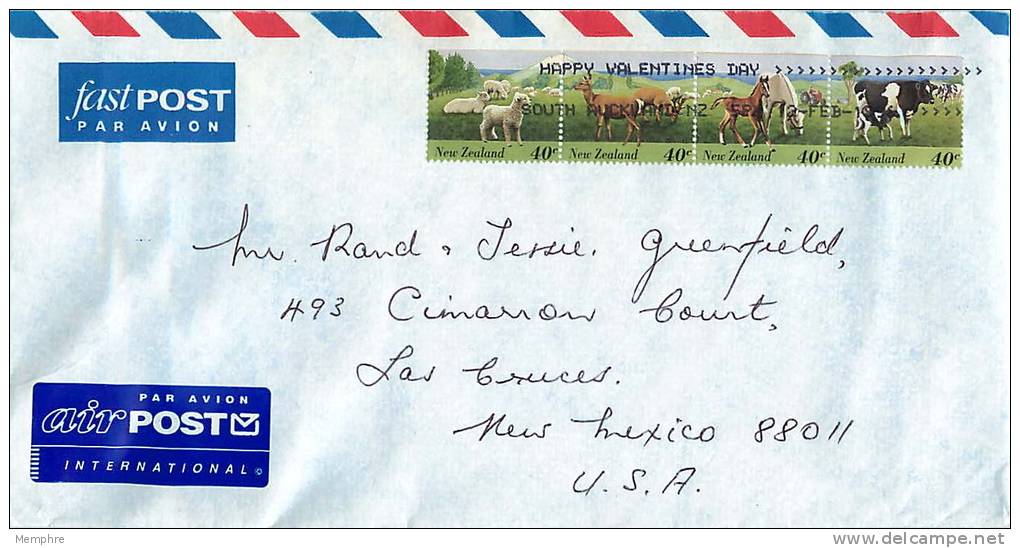 fast POST
PAR AVION
HAPPY VALENTINES DAY >>>>>>>>>>>>>>>>
SOUTH AUCKLAND NZ
FEB-
New Zealand 40c New Zealand 40c New Zealand 40c New Zealand 40c
Mr. Rand & Jessie. Greenfield,
493 Cimarron Court,
Las Cruces.
New Mexico 88011
U.S.A.
PAR AVION
air POST
INTERNATIONAL ©
Memphre
www.delcampe.net